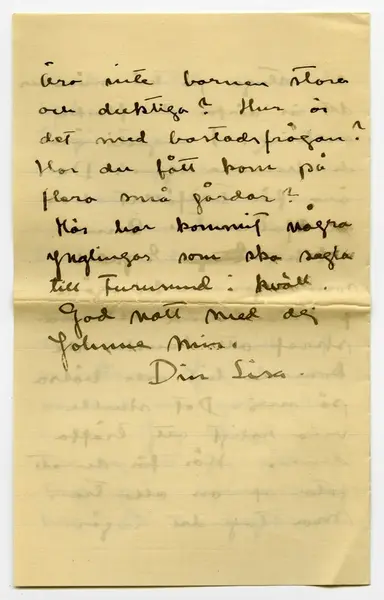 Äro inte barnen stora
och duktiga? Hur är
det med bostadsfrågan?
Har du fått korn på
flera små gårdar?
Här har kommit några
ynglingar som ska segla
till Furusund i kväll.
God natt med dej
Johnne min.
Din Lisa.